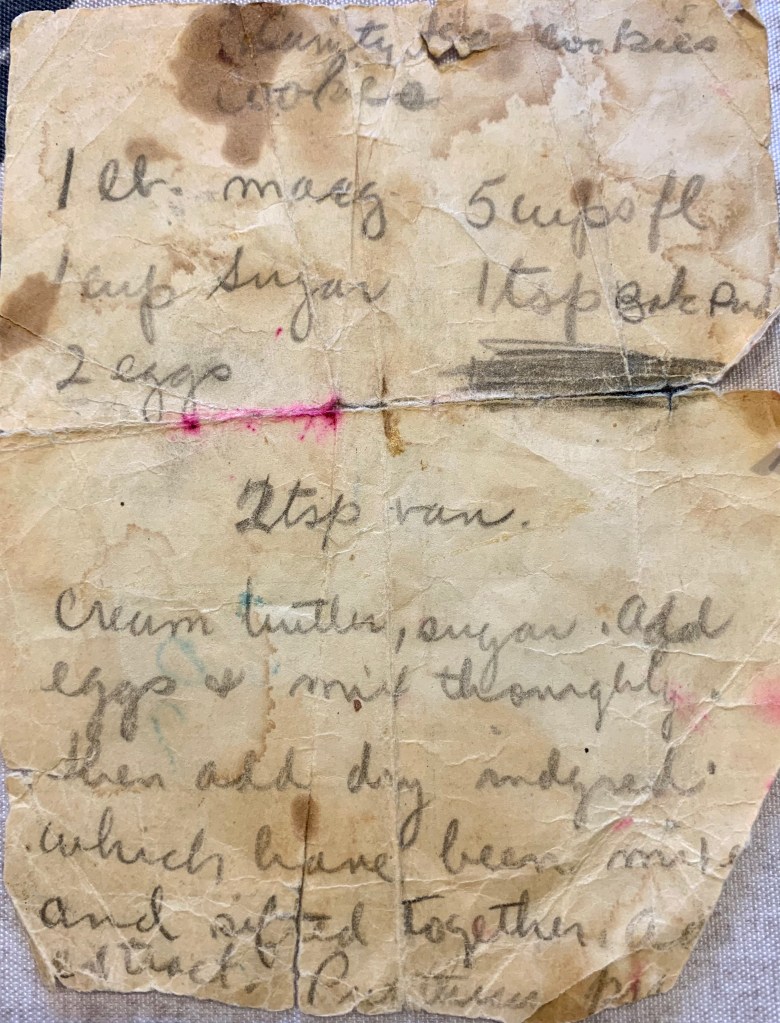 Dainty Tea cookies
cookies
1 lb. marg 5 cups fl
1 cup sugar 1 tsp Bak Pwd
2 eggs
2 tsp van.
Cream butter, sugar. Add
eggs & mix thoroughly.
then add dry indgred.
which have been mixe
and sifted together. Ad
extract. Put